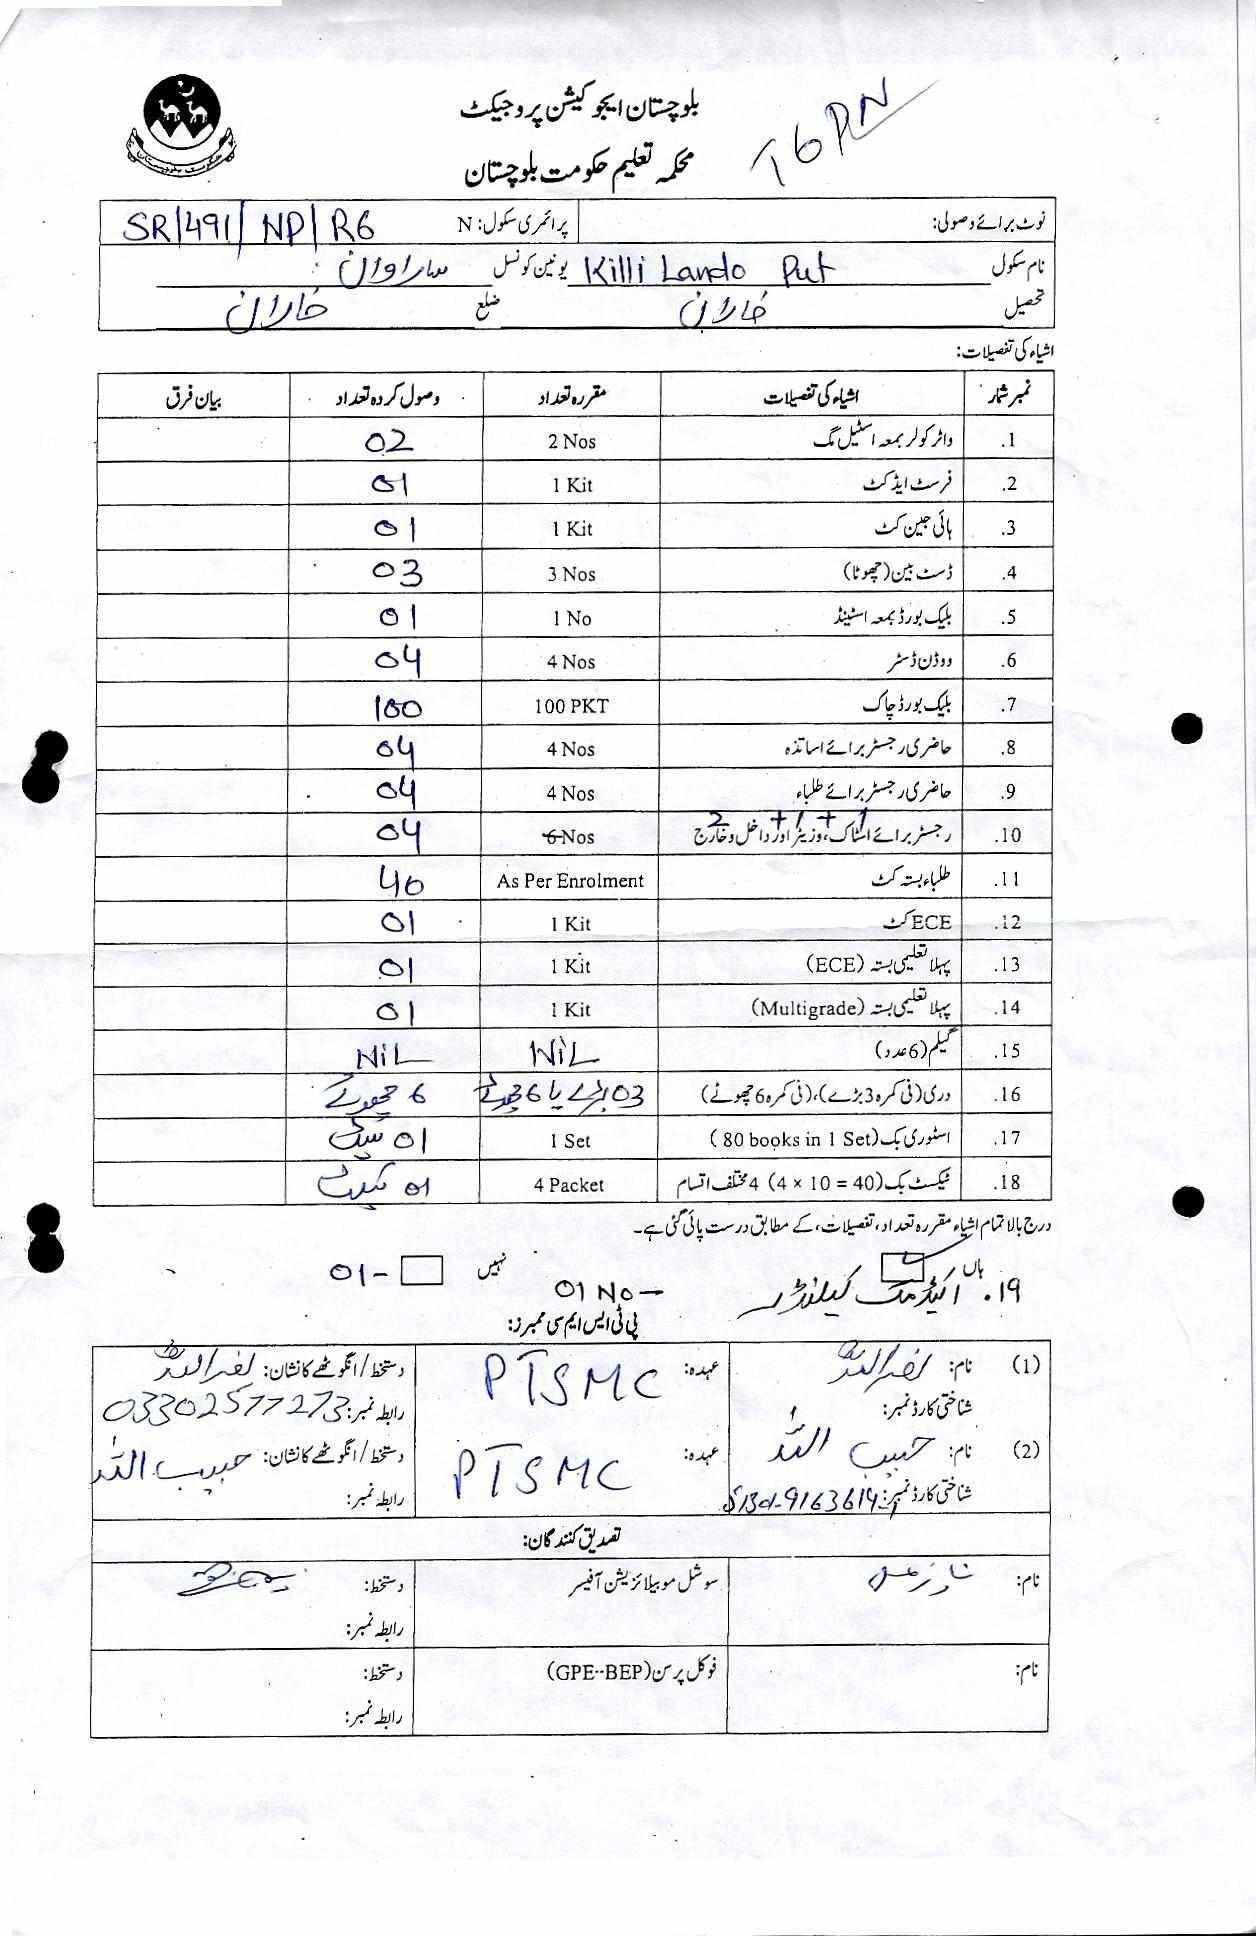 بلوچستان ایجوکیشن پروجیکٹ
محکمہ تعلیم حکومت بلوچستان
حکومت بلوچستان
نوٹ برائے وصولی: پرائمری سکول: N SR/491/NP/R6
نام سکول Killi Lando Put یونین کونسل سراوان
تحصیل خاران ضلع خاران
اشیاء کی تفصیلات:
نمبر شمار اشیاء کی تفصیلات مقررہ تعداد وصول کردہ تعداد بیان فرق
1. واٹر کولر بمعہ اسٹیل مگ 2 Nos 02
2. فرسٹ ایڈ کٹ 1 Kit 01
3. ہائی جین کٹ 1 Kit 01
4. ڈسٹ بین (چھوٹا) 3 Nos 03
5. بلیک بورڈ بمعہ اسٹینڈ 1 No 01
6. ووڈن ڈسٹر 4 Nos 04
7. بلیک بورڈ چاک 100 PKT 100
8. حاضری رجسٹر برائے اساتذہ 4 Nos 04
9. حاضری رجسٹر برائے طلباء 4 Nos 04
2 + 1 + 1
10. رجسٹر برائے اسٹاک، وزیٹر اور داخل و خارج 6 Nos 04
11. طلباء بستہ کٹ As Per Enrolment 40
12. ECE کٹ 1 Kit 01
13. پہلا تعلیمی بستہ (ECE) 1 Kit 01
14. پہلا تعلیمی بستہ (Multigrade) 1 Kit 01
15. گیلم (6 عدد) NiL NiL
16. دری (فی کمرہ 3 بڑے)، (فی کمرہ 6 چھوٹے) 03 بڑے یا 6 چھوٹے 6 چھوٹے
17. اسٹوری بک (80 books in 1 Set) 1 Set 01 سیٹ
18. ٹیکسٹ بک (4 × 10 = 40) 4 مختلف اقسام 4 Packet 01
درج بالا تمام اشیاء مقررہ تعداد، تفصیلات، کے مطابق درست پائی گئی ہے۔
ہاں نہیں 01-
19. اکیڈمک کیلنڈر 01 No -
پی ٹی ایس ایم سی ممبرز:
(1) نام: نصراللہ عہدہ: PTSMC دستخط/انگوٹھے کا نشان: نصراللہ
شناختی کارڈ نمبر: رابطہ نمبر: 03302577273
(2) نام: حبیب اللہ عہدہ: PTSMC دستخط/انگوٹھے کا نشان: حبیب اللہ
شناختی کارڈ نمبر: رابطہ نمبر:
تصدیق کنندگان:
نام: سوشل موبیلائزیشن آفیسر دستخط:
رابطہ نمبر:
نام: فوکل پرسن (GPE--BEP) دستخط:
رابطہ نمبر: